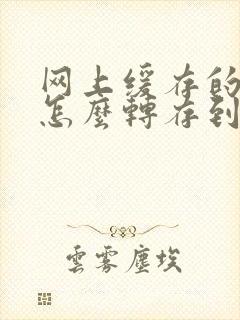 网上缓存的
怎麼轉存到
雲雾塵埃